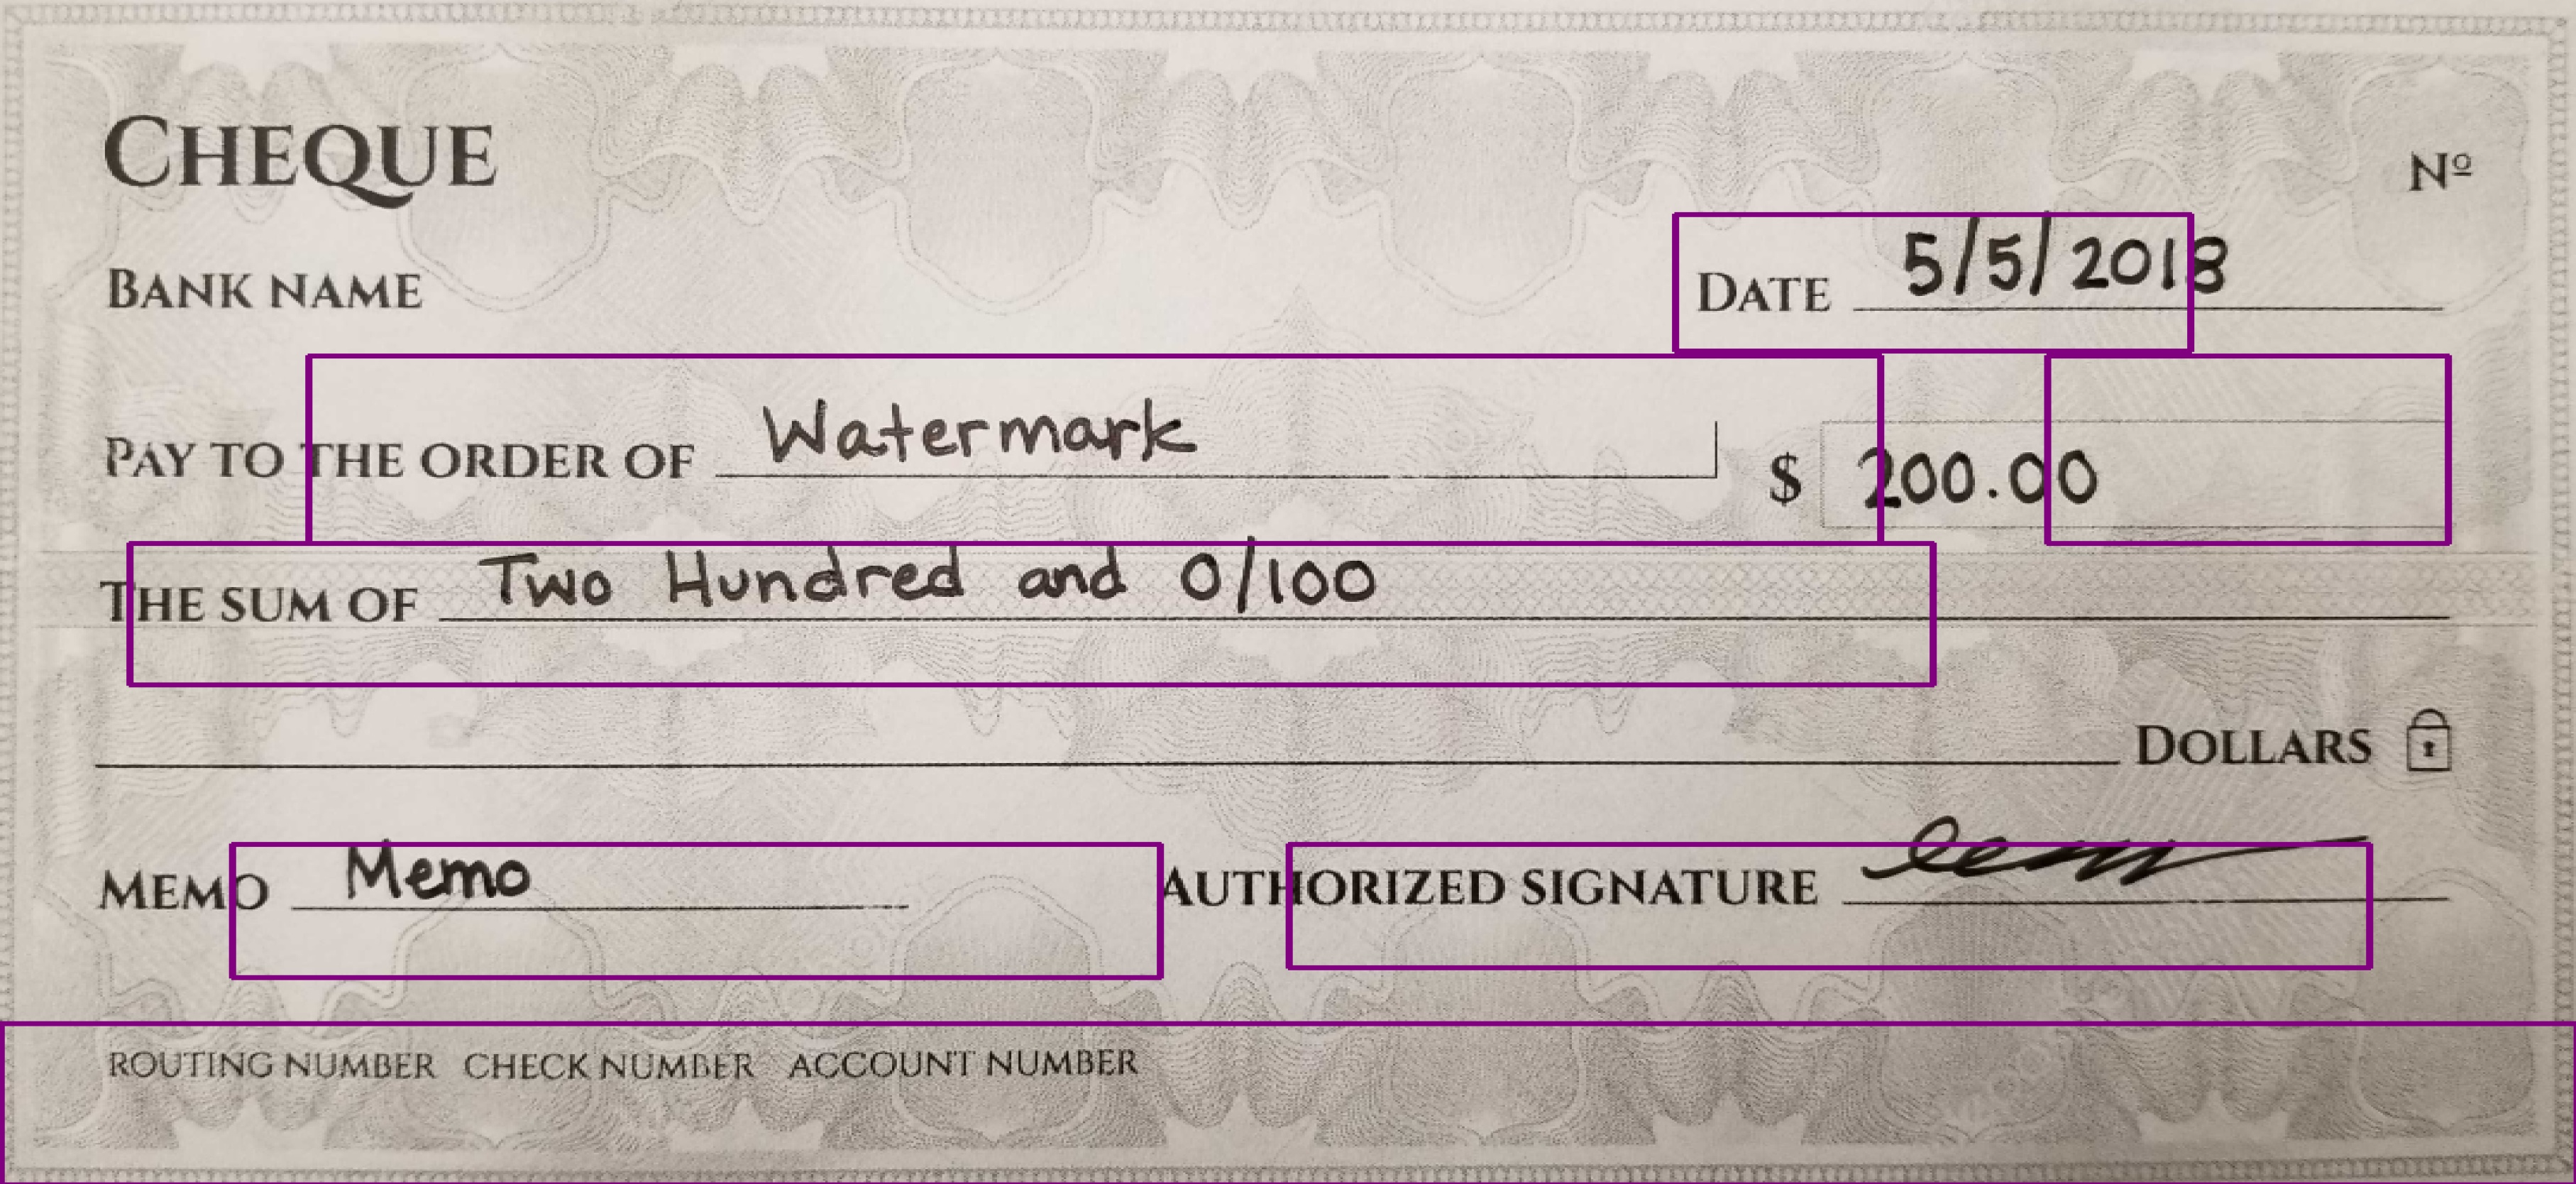 CHEQUE
Nº
BANK NAME
DATE 5/5/2018
PAY TO THE ORDER OF Watermark $ 200.00
THE SUM OF Two Hundred and 0/100
DOLLARS
MEMO Memo AUTHORIZED SIGNATURE
ROUTING NUMBER CHECK NUMBER ACCOUNT NUMBER